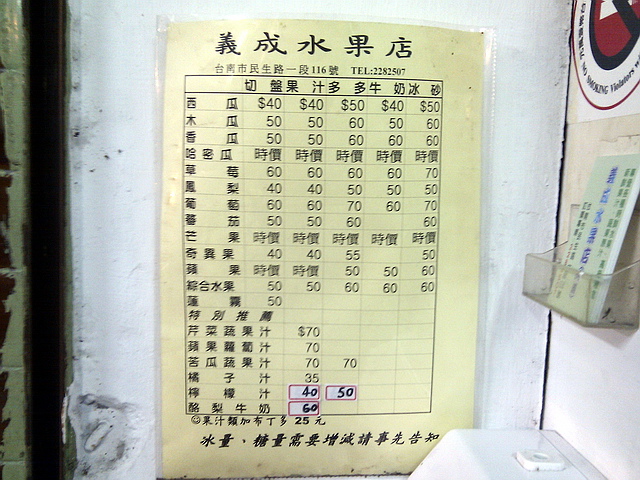 義成水果店
台南市民生路一段116號 TEL:2282507
切盤 果汁 多多 牛奶 冰砂
西瓜 $40 $40 $50 $40 $50
木瓜 50 50 60 50 60
香瓜 50 50 60 60 60
哈密瓜 時價 時價 時價 時價 時價
草莓 60 60 60 60 70
鳳梨 40 40 50 50 50
葡萄 60 60 70 60 70
蕃茄 50 50 60 60
芒果 時價 時價 時價 時價 時價
奇異果 40 40 55 50
蘋果 時價 時價 50 50 60
綜合水果 50 50 60 60 60
蓮霧 50
特別推薦
芹菜蔬果汁 $70
蘋果蘿蔔汁 70
苦瓜蔬果汁 70 70
橘子汁 35
檸檬汁 40 50
酪梨牛奶 60
◎果汁類加布丁多 25 元
冰量、糖量需要增減請事先告知
NO SMOKING Violators